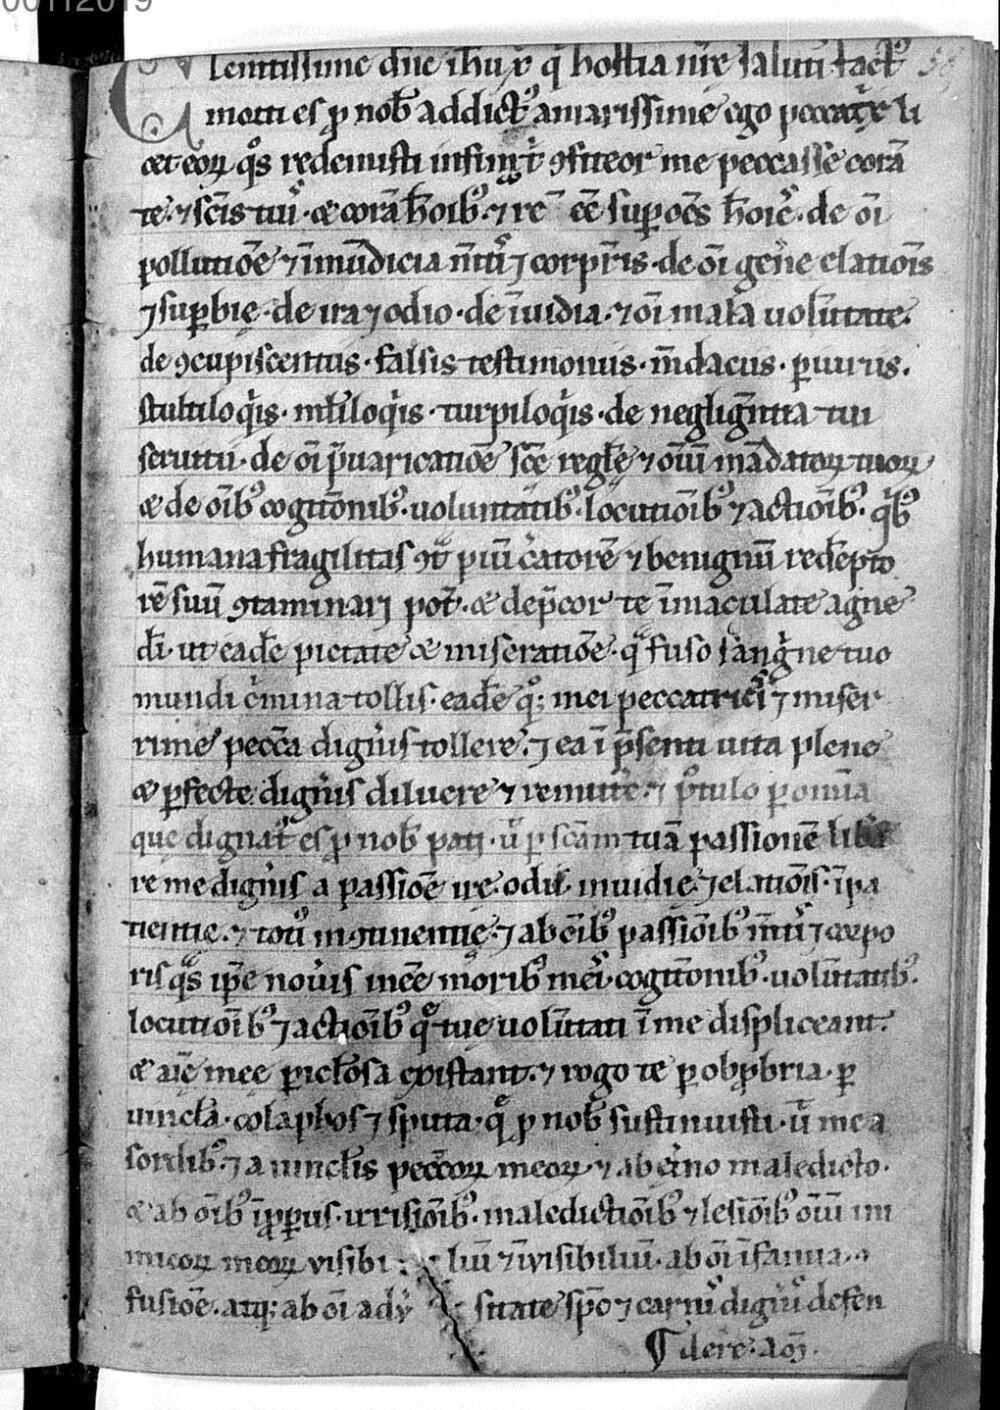 00112019
Clemtissime dn̄e ih̄u xp̄ q̇ hostia nr̄e salutī fact᷒
morti es ꝓ nob̄ addict᷒ amarissime ego peccatͥx li
cet eoꝝ qͦs redemisti infimͣ t̄ ꝯfiteor me peccasse corā
te. ⁊ scīs tuis. & corā hoīb᷒. ⁊ re ēē suꝑ om̄s hoīes. de oī
pollutiōe ⁊ īmūdicia mt̄is ⁊ corꝑis. de oī gen̄e elatiōis
⁊ suꝑbię. de ira ⁊ odio. de īuidia. ⁊ oī mala uolūtate.
de ꝯcupiscentiis. falsis testimoniis. m̄daciis. ꝑiuriis.
stultiloqͥis. mlt̄iloqͥis. turpiloqͥis. de neglign̄tia tui
seruitii. de oī p̄uaricatiōe scē reglę̄ ⁊ oīū mādatoꝝ tuoꝝ
& de oīb᷒ cogitōnib᷒. uoluntatib᷒. locutiōib᷒ ⁊ actiōib᷒. qͥb᷒
humana fragilitas ꝯtͣ piū cͤatorē ⁊ benignū redēpto
rē suū ꝯtaminari pot̄. & dep̄cor te īmaculate agne
dī. ut eadē pietate & miseratiōe. qͣ fuso sangͥne tuo
mundi cͥmina tollis. eadē qͦꝫ mei peccatricis ⁊ miser
rime peccā digneris tollere. ⁊ ea ī p̄senti uita plene
& ꝑfecte digneris diluere ⁊ remittͤe. ⁊ pͦtulo ꝑ omīa
que dignat᷒ es ꝓ nob̄ pati. ut̄ ꝑ scām tuā passionē libͣa
re me digneris a passiōe ire. odii. inuidię. ⁊ elatiōis. īpa
tientię. ⁊ toti᷒ inꝯtinentię. ⁊ ab oīb᷒ passiōib᷒ mt̄is ⁊ corpo
ris qͣs ip̄e nouis inēē morib᷒ meis. cogitōnib᷒. uolūtatib᷒.
locutiōib᷒ ⁊ actiōib᷒ qͤ tuę uolūtati ī me displiceant.
& aīę meę ꝑiclōsa existant. ⁊ rogo te ꝑ obꝓbria. ꝑ
uincla. colaphos ⁊ sputa. qͤ ꝓ nob̄ sustinuisti. ut̄ me a
sordib᷒. ⁊ a uinclis pecc̄oꝝ meoꝝ ⁊ ab et̄no maledicto.
& ab oīb᷒ īꝓꝑiis. irrisiōib᷒. maledictiōib᷒ ⁊ lesiōib᷒ oīū ini
micoꝝ meoꝝ visibi liū ⁊ īvisibiliū. ab oī īfamia.
fusiōe. atqꝫ ab oī adū sitate sp̄o ⁊ carnis digneris defen
dere. am̄.